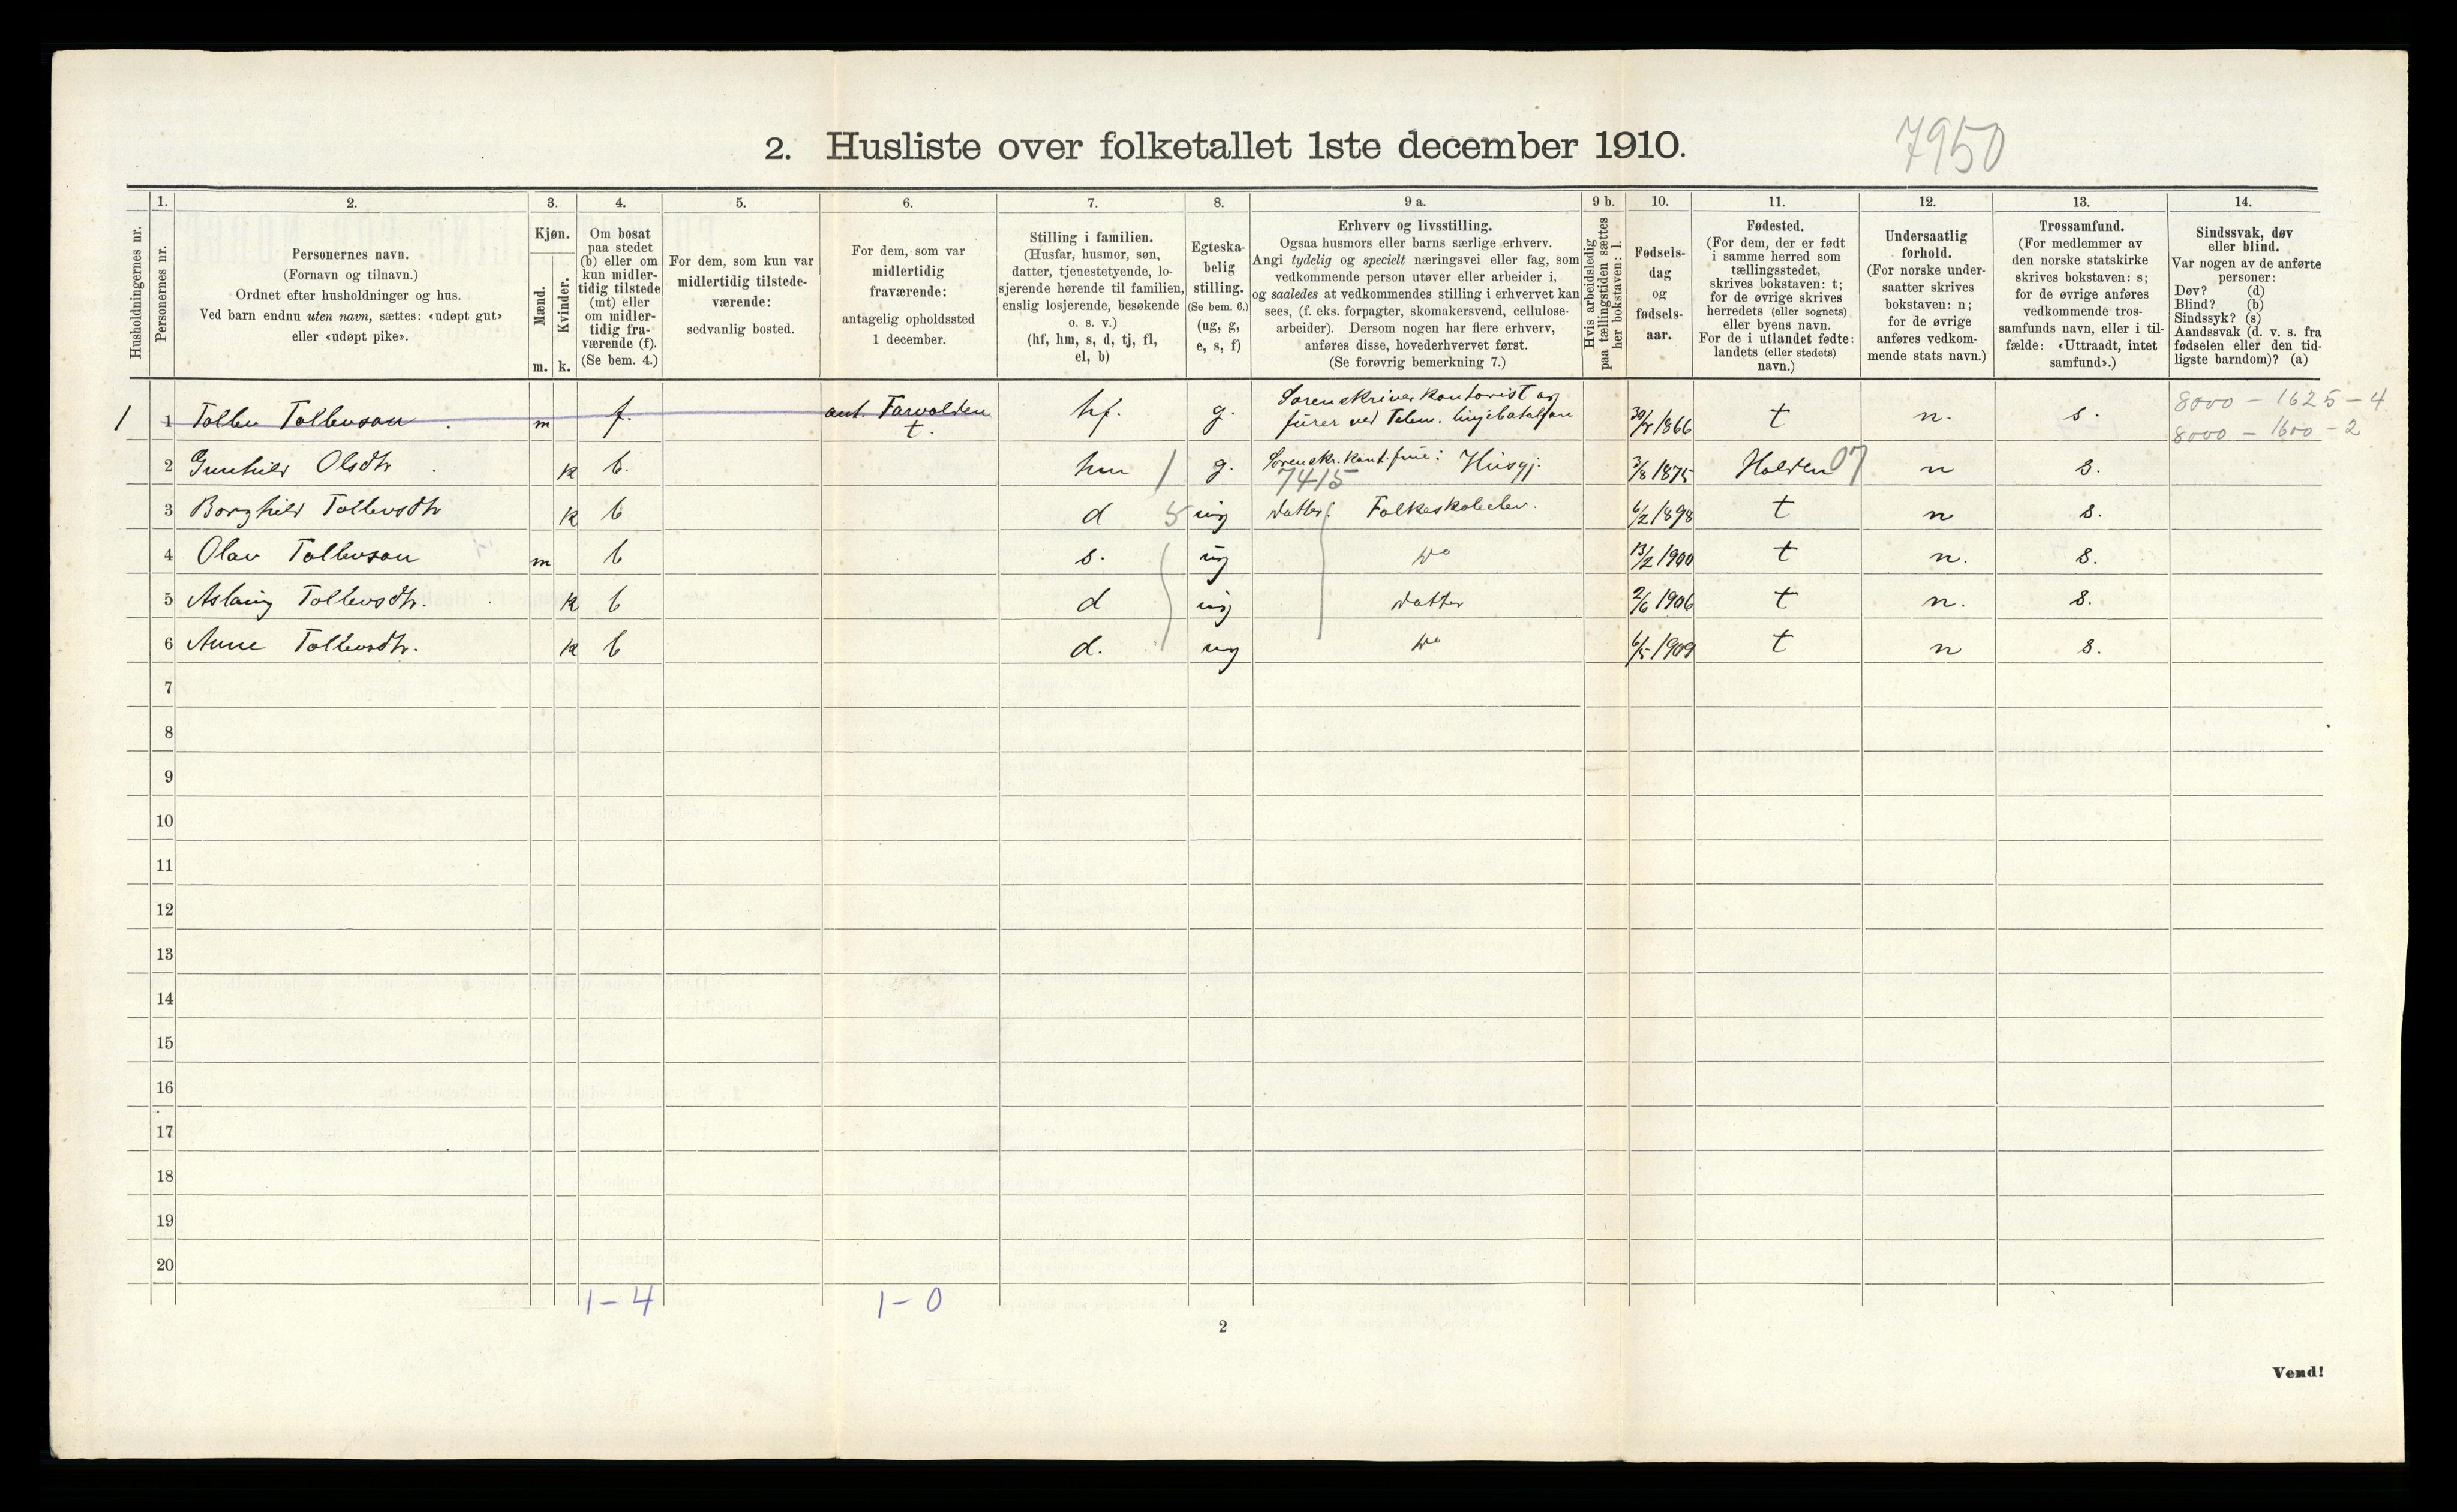 2. Husliste over folketallet 1ste december 1910.
7950
Husholdningernes nr.
1.
Personernes nr.
2.
Personernes navn.
(Fornavn og tilnavn.)
Ordnet efter husholdninger og hus.
Ved barn endnu uten navn, sættes: «udøpt gut»
eller «udøpt pike».
3.
Kjøn.
Mænd.
Kvinder.
m. k.
4.
Om bosat
paa stedet
(b) eller om
kun midler-
tidig tilstede
(mt) eller
om midler-
tidig fra-
værende (f).
(Se bem. 4.)
5.
For dem, som kun var
midlertidig tilstede-
værende:
sedvanlig bosted.
6.
For dem, som var
midlertidig
fraværende:
antagelig opholdssted
1 december.
7.
Stilling i familien.
(Husfar, husmor, søn,
datter, tjenestetyende, lo-
sjerende hørende til familien,
enslig losjerende, besøkende
o. s. v.)
(hf, hm, s, d, tj, fl,
el, b)
8.
Egteska-
belig
stilling.
(Se bem. 6.)
(ug, g,
e, s, f)
9 a.
Erhverv og livsstilling.
Ogsaa husmors eller barns særlige erhverv.
Angi tydelig og specielt næringsvei eller fag, som
vedkommende person utøver eller arbeider i,
og saaledes at vedkommendes stilling i erhvervet kan
sees, (f. eks. forpagter, skomakersvend, cellulose-
arbeider). Dersom nogen har flere erhverv,
anføres disse, hovederhvervet først.
(Se forøvrig bemerkning 7.)
9 b.
Hvis arbeidsledig
paa tællingstiden sættes
her bokstaven: l.
10.
Fødsels-
dag
og
fødsels-
aar.
11.
Fødested.
(For dem, der er født
i samme herred som
tællingsstedet,
skrives bokstaven: t;
for de øvrige skrives
herredets (eller sognets)
eller byens navn.
For de i utlandet fødte:
landets (eller stedets)
navn.)
12.
Undersaatlig
forhold.
(For norske under-
saatter skrives
bokstaven: n;
for de øvrige
anføres vedkom-
mende stats navn.)
13.
Trossamfund.
(For medlemmer av
den norske statskirke
skrives bokstaven: s;
for de øvrige anføres
vedkommende tros-
samfunds navn, eller i til-
fælde: «Uttraadt, intet
samfund».)
14.
Sindssvak, døv
eller blind.
Var nogen av de anførte
personer:
Døv? (d)
Blind? (b)
Sindssyk? (s)
Aandssvak (d. v. s. fra
fødselen eller den tid-
ligste barndom)? (a)
1 1 Tollev Tollevson m f. ant. Farvolden t. hf. g. Sorenskriverkontorist og furer ved Telem. linjebataljon 1866 t n. s. 8000 - 1625 - 4
8000 - 1600 - 2
2 Gunhild Olsdtr k b. hm 1 g. Sorenskr.kont.frue: Husgj. 7415 3/8 1875 Holden 07 n s.
3 Borghild Tollevsdtr k b d 5 ug datter: Folkeskoleelev. 6/2 1898 t n s.
4 Olav Tollevson m b s. ug do 13/2 1900 t n. s.
5 Aslaug Tollevsdtr. k b d ug datter 2/6 1906 t n. s.
6 Anne Tollevsdtr. k b d. ug do 6/5 1909 t n s.
7
8
9
10
11
12
13
14
15
16
17
18
19
20
1 - 4 1 - 0
2
Vend!